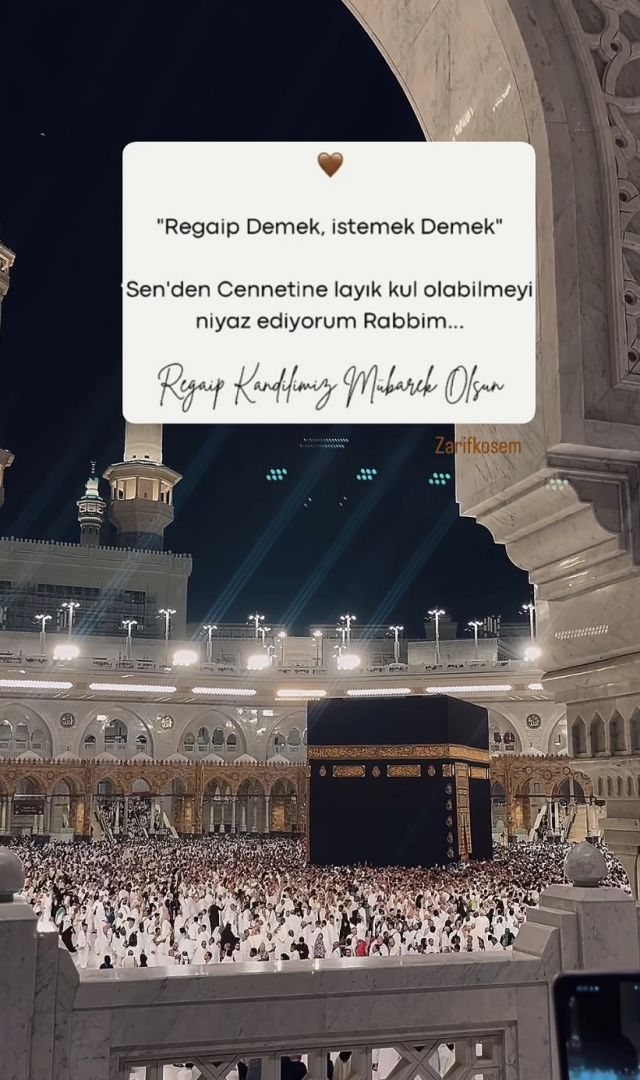 "Regaip Demek, istemek Demek"
Sen'den Cennetine layık kul olabilmeyi
niyaz ediyorum Rabbim...
Regaip Kandilimiz Mübarek Olsun
Zarifkosem